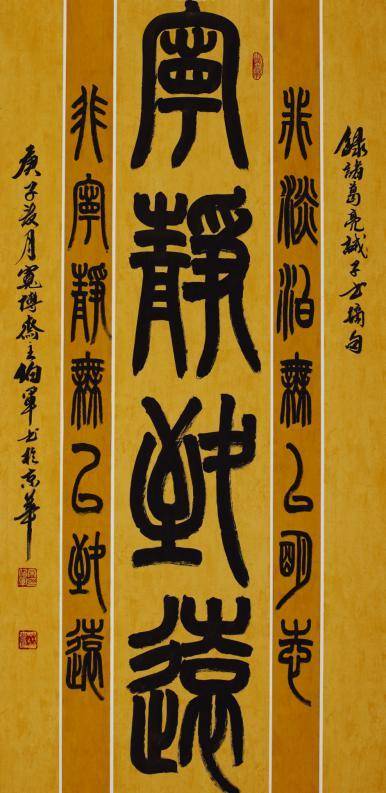 錄諸葛亮誡子书摘句
非淡泊無以明志
寧靜致遠
非寧靜無以致遠
庚子月寬博齋主伯軍书於京華